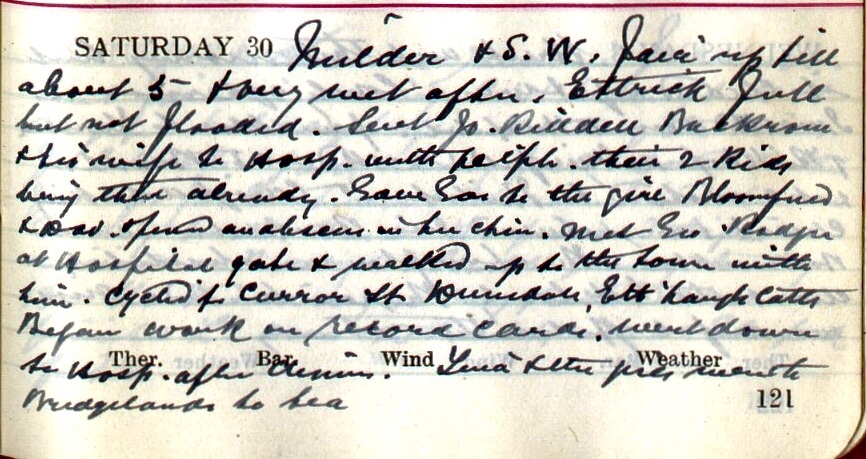 SATURDAY 30 Milder & S. W. Fair up till
about 5 & very wet after. Ettrick full
but not flooded. Sent Jo. Riddell
& his wife to Hosp. with their 2 Kids
being there already. Gave Gas to the girl Bloomfield
& Dav. opened an abscess in her chin. Met Geo Rodger
at Hospital gate & walked up to the town with
him. Cycled to Curror St Dunsdale, Ett'haugh Cotts
Began work on record cards. Went down
Ther. Bar. Wind Weather
to Hosp. after dinner. & the girls went to
Bridgelands to tea
121